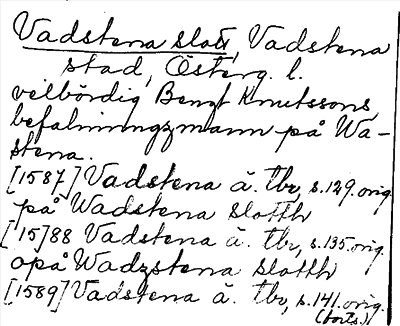 Vadstena slott, Vadstena
stad, Österg. l.
velbördig Bengt Knutssons
befalningzmann på Wa-
stena.
[1587] Vadstena ä. tbr, s.129. orig.
på Wadstena Slotth
[15]88 Vadstena ä. tbr, s.135 orig.
opå Wadzstena Slotth
[1589] Vadstena ä. tbr, s.141. orig.
(forts.)